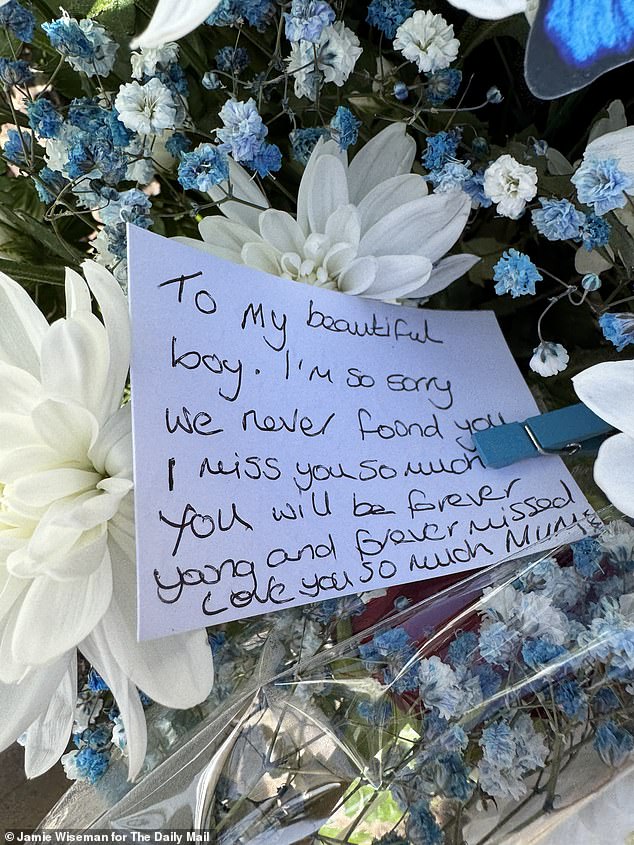 To My beautiful
boy. I'm so sorry
We never found you
I miss you so much
You will be forever
young and forever missed
Love you so much Mum
© Jamie Wiseman for The Daily Mail